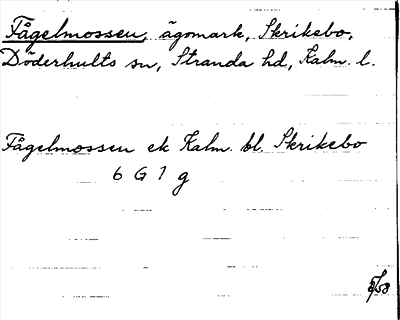 Fågelmossen, ägomark, Skrikebo,
Döderhults sn, Stranda hd, Kalm. l.
Fågelmossen ek Kalm. bl. Skrikebo
6 G 1 g